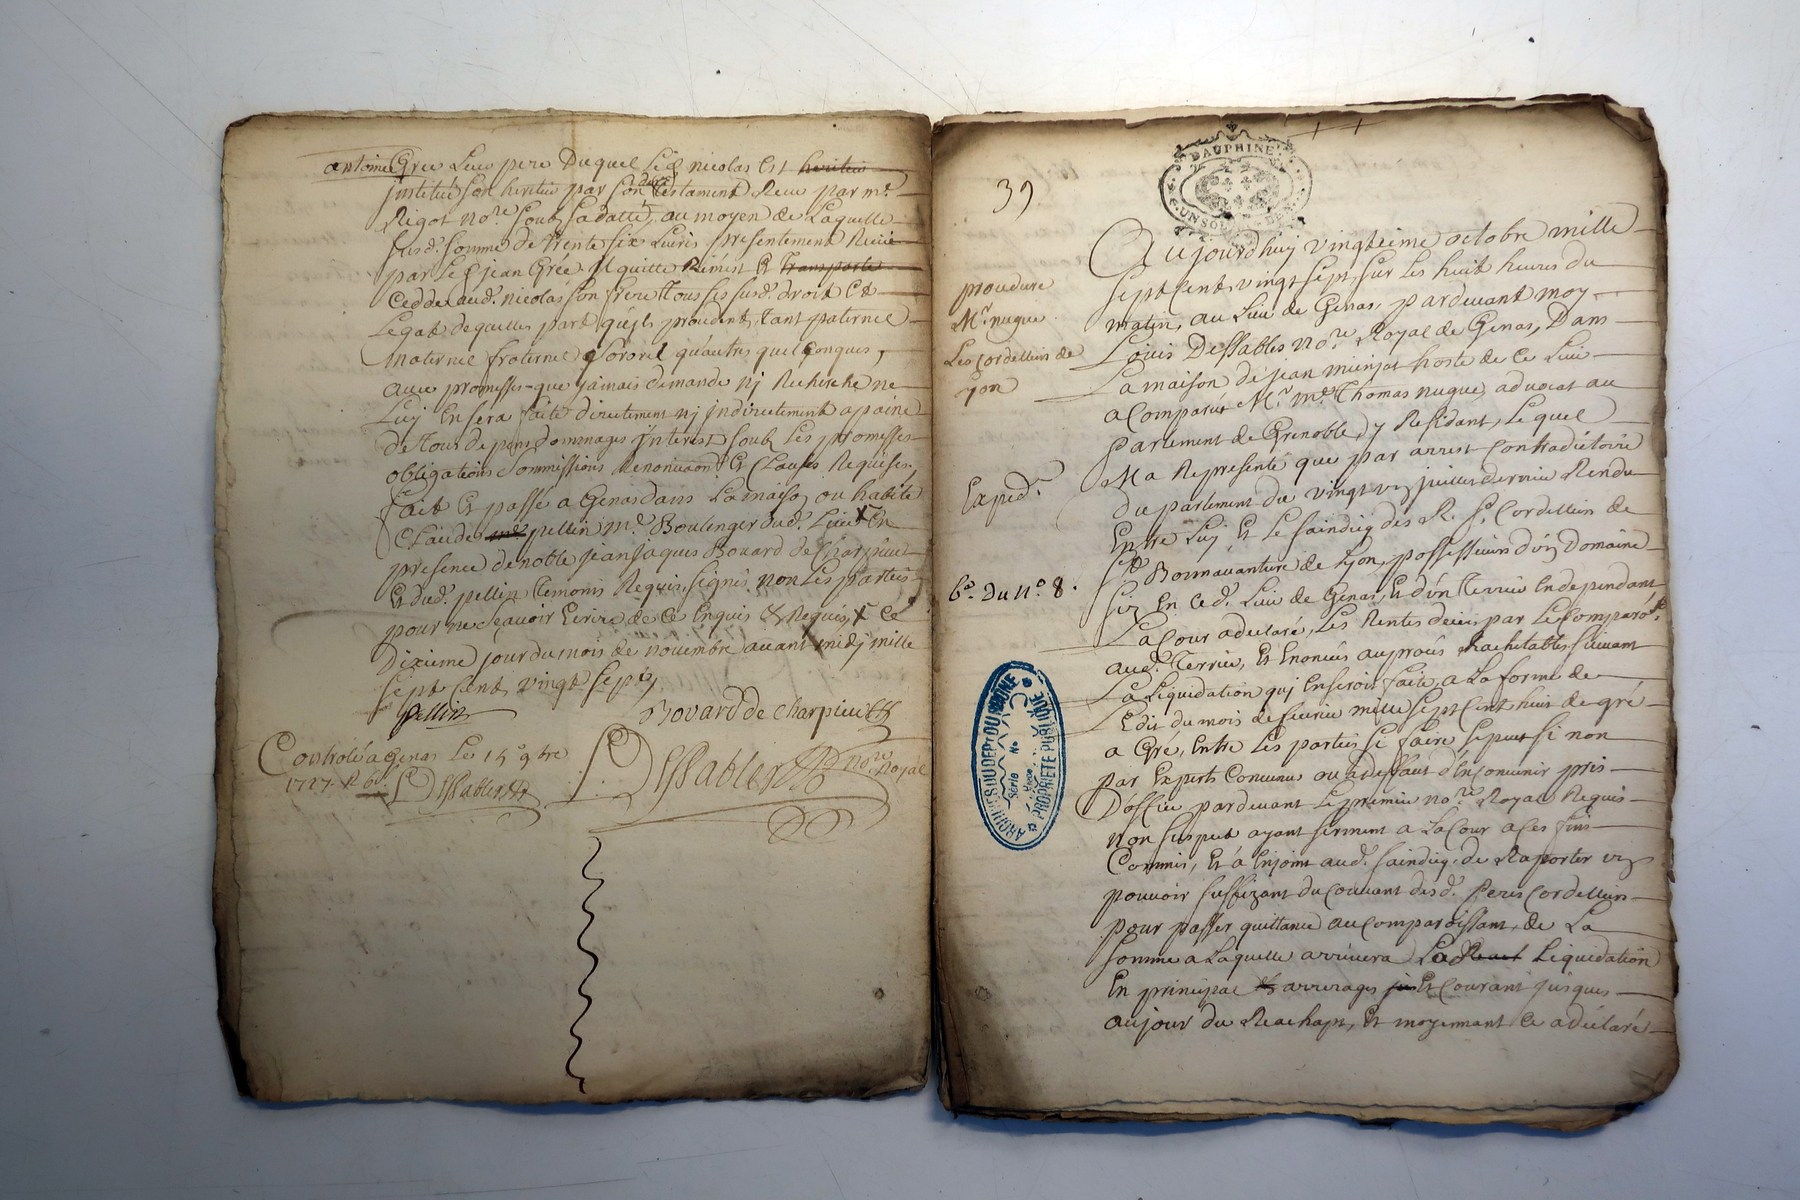 antoine Grée Leur pere Duquel led. nicolas est heritier
institué son heritier par son dier testament Receu par me.
Rigot nore. soub sa datte, au moyen de Laquelle
susd. somme de trente six Livres presentement Receüe
par led. jean Grée Il quitte Rémet Et transporte
Cedde aud. nicolas son frere tous ses susd. droit Et
Legat dequelles part qu'jls procedent, tant paternel
Maternel fraternel Sororel qu'autres quelconques,
avec promesse que jamais demande nj Recherche ne
Luy En sera faite directement nj jndirectement a paine
de tous depens dommages jnterest soub Les promesses
obligations soummissions Renonciaõns Et Clauses Requises,
fait Et passé a Genas dans La maison ou habite
Claude pellin me. Boulenger dud. Lieu En
presence de noble jean jaques Bovard de Charpieu
Et dud. pellin temoins Requis signés non Les parties
pour ne sçavoir Ecrire de ce Enquis & Requis, Ce
Dixieme jour du mois de novembre avant midj mille
sept cent vingt sept,
Pellin
Bovard de charpieu
Controlé a Genas Le 15e 9bre
1727. R 6s. Dessables
Dessables nore. Royal
DAUPHINÉ
UN SOL
39
procedure
Mr. nugue
Les Cordelliers de
Lyon
Exped.
6e. du no. 8.
Aujourdhuy vingtieme octobre mille
sept cent vingt sept sur les huit heures du
matin, au Lieu de Genas, pardevant moy
Louis Dessables nore. Royal de Genas, Dans
La maison de jean hoste de ce Lieu
a Comparut Mr. me. Thomas nugue advocat au
Parlement de Grenoble, y Residant, Lequel
M'a Representé que par arrest Contradictoire
du parlement du vingt juillet dernier Rendu
Entre Luy Et le saindicq des R. P. Cordelliers de
st. Bonnavanture de Lyon, possesseurs d'un Domaine
siz En Ced. Lieu de Genas, Et d'un terrier En dependant
La Cour a declaré, Les Rentes deües par Le Comparõt.
aud. terrier, Et Enoncés au procés Rachetables suivant
La Liquidation quj En seroit faite a La forme de
L'Edit du mois de fevrier mille sept cent huit de gré
a Gré, Entre Les parties se faire se peut si non
par Experts Convenus ou a deffaut d'En convenir pris
D'office pardevant Le premier nore. Royal Requis
non suspect ayant serment a La Cour a Ces fins
Commis, Et a Enjoint aud. saindicq de Raporter un
pouvoir suffizant du Couvant desd. Peres Cordelliers
pour passer quittance au Comparoissant, de La
somme a Laquelle arrivera La Liquidation
En principal arrerages Et Courant jusques
au jour du Rachapt, Et moyennant ce a declaré
ARCHIVES DU DEPT DU RHÔNE
Série No
PROPRIÉTÉ PUBLIQUE